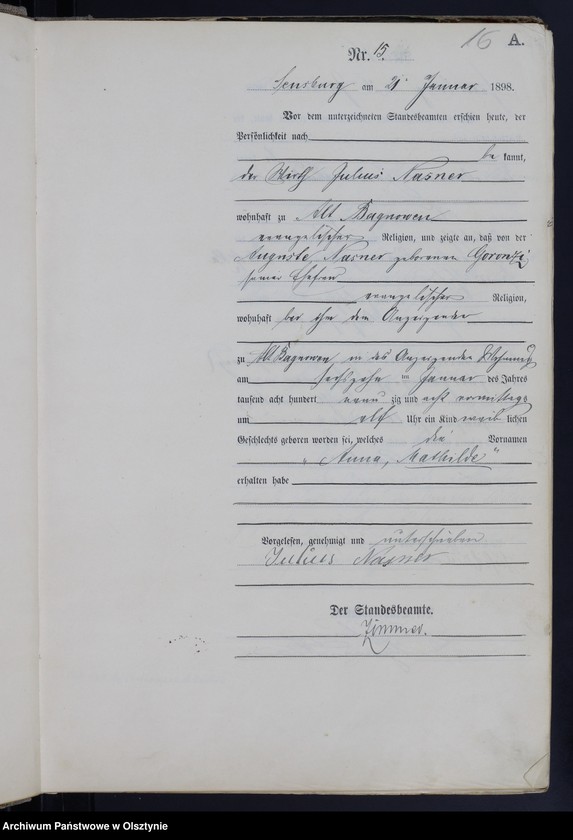 16 A.
Nr. 15.
Sensburg am 21 Januar 1898.
Vor dem unterzeichneten Standesbeamten erschien heute, der
Persönlichkeit nach
be kannt,
der Wirth Julius Nasner
wohnhaft zu Alt Bagnowen
evangelischer Religion, und zeigte an, daß von der
Auguste, Nasner geborenen Goronzi
seiner Ehefrau
evangelischer Religion,
wohnhaft bei ihm dem Anzeigenden
zu Alt Bagnowen in des Anzeigenden Wohnung
am sechszehn ten Januar des Jahres
tausend acht hundert neun zig und acht vormittags
um elf Uhr ein Kind weib lichen
Geschlechts geboren worden sei, welches die Vornamen
„Anna, Mathilde"
erhalten habe
Vorgelesen, genehmigt und unterschrieben
Julius Nasner
Der Standesbeamte.
Zimmer.
Archiwum Państwowe w Olsztynie